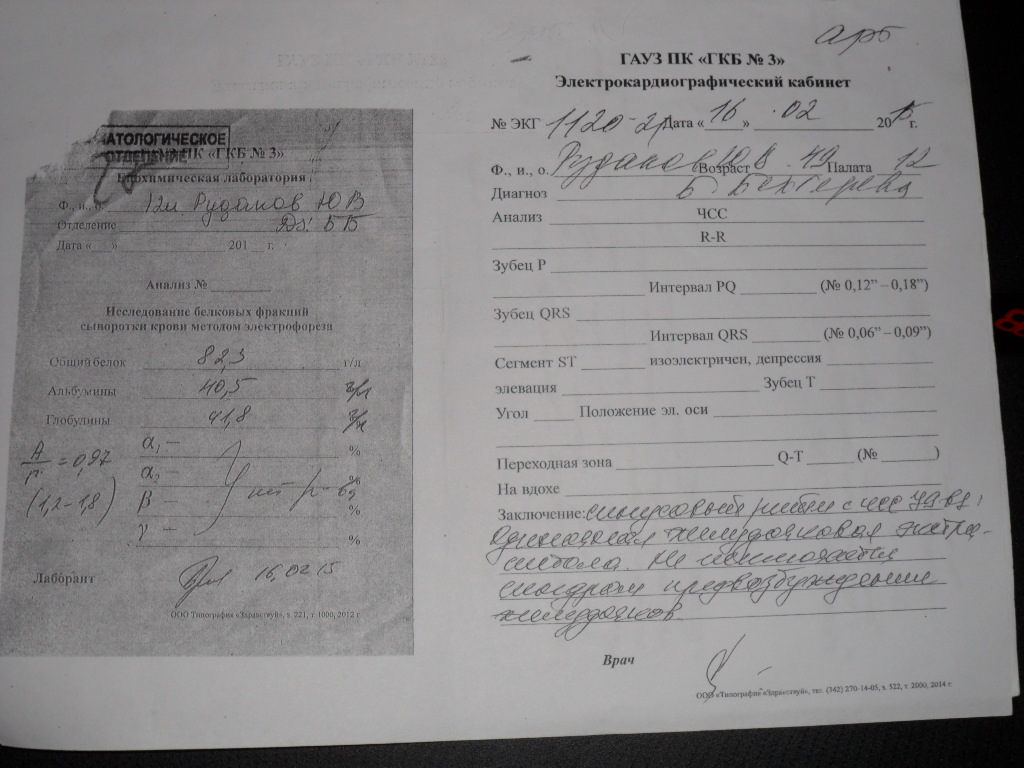 АТОЛОГИЧЕСКОЕ
ОТДЕЛЕНИЕ
ПК «ГКБ № 3»
Биохимическая лаборатория
Ф., и., о. 12п. Рудаков Ю В
Отделение Ds: ББ
Дата « » 201 г.
Анализ №
Исследование белковых фракций
сыворотки крови методом электрофореза
Общий белок 82,3 г/л
Альбумины 40,5 г/л
Глобулины 41,8 г/л
А/Г = 0,97
(1,2-1,8)
α₁ — %
α₂ — %
β — %
γ — %
нет р-
Лаборант 16,02 15
ООО Типография «Здравствуй», з. 221, т. 1000, 2012 г
арб
ГАУЗ ПК «ГКБ № 3»
Электрокардиографический кабинет
№ ЭКГ 1120-21 Дата « 16 » 02 2015 г.
Ф., и., о. Рудаков Ю В Возраст 49 Палата 12
Диагноз Б. Бехтерева
Анализ ЧСС
R-R
Зубец P
Интервал PQ (№ 0,12” – 0,18”)
Зубец QRS
Интервал QRS (№ 0,06” – 0,09”)
Сегмент ST изоэлектричен, депрессия
элевация Зубец T
Угол Положение эл. оси
Переходная зона Q-T (№ )
На вдохе
Заключение: синусовый ритм с чсс 79 в 1'
Одиночная желудочковая экстра-
систола. Не исключается
синдром предвозбуждения
желудочков.
Врач
ООО «Типография «Здравствуй», тел. (342) 270-14-05, з. 522, т. 2000, 2014 г.